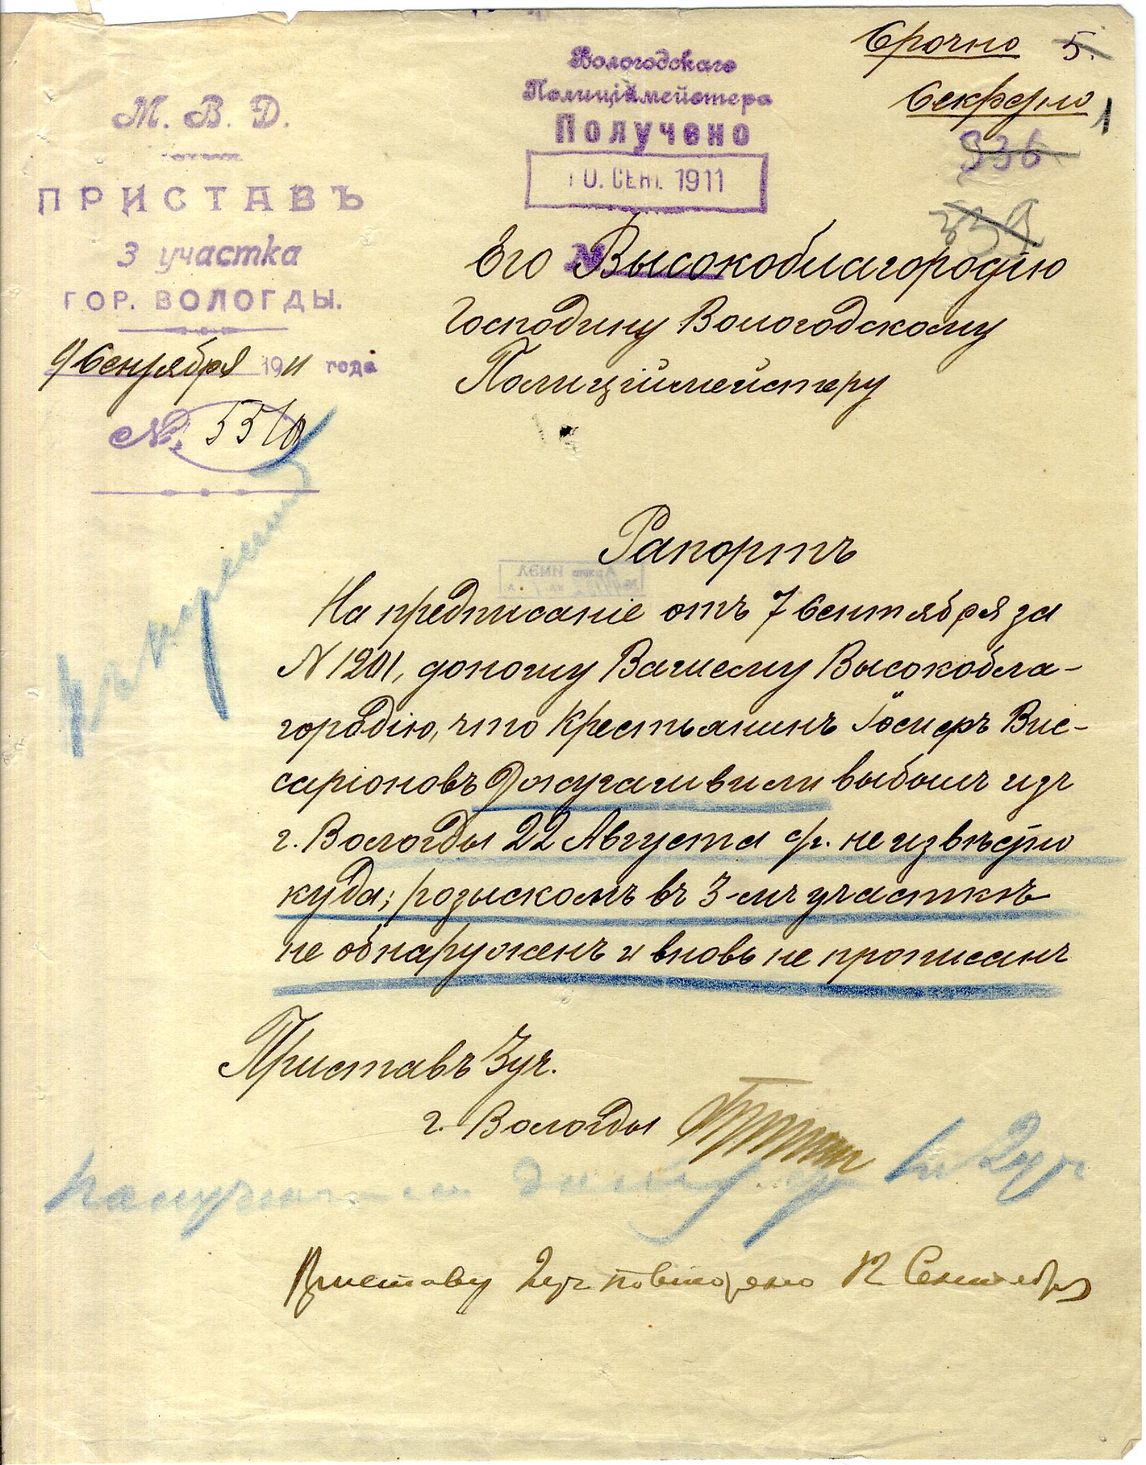 Срочно 5.
Секретно 1
336
339
Вологодскаго
Полиціймейстера
Получено
10. СЕН. 1911
№
М. В. Д.
ПРИСТАВЪ
3 участка
ГОР. ВОЛОГДЫ.
9 Сентября 1911 года
№ 5510
Его Высокоблагородію
Господину Вологодскому
Полиціймейстеру
Рапортъ
На предписаніе отъ 7 Сентября за
N 1201, доношу Вашему Высокобла-
городію, что крестьянинъ Іосифъ Вис-
саріоновъ Джугашвили выбылъ изъ
г. Вологды 22 Августа с/г. неизвѣстно
куда; розыскомъ въ 3-мъ участкѣ
не обнаруженъ и вновь не прописанъ
Приставъ 3 уч.
г. Вологды
въ 2 уч
Приставу 2 уч повторено 12 Сентября